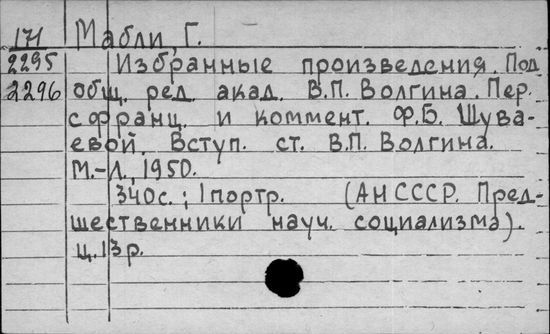 171 Мабли, Г.
2295 Избранные произведения. Под
2296 общ. ред. акад. В.П. Волгина. Пер.
с франц. и коммент. Ф.Б. Шува-
евой. Вступ. ст. В.П. Волгина.
М.-Л., 1950.
340с.; 1 портр. (АН СССР. Пред-
шественники науч. социализма).
ц. 13 р.